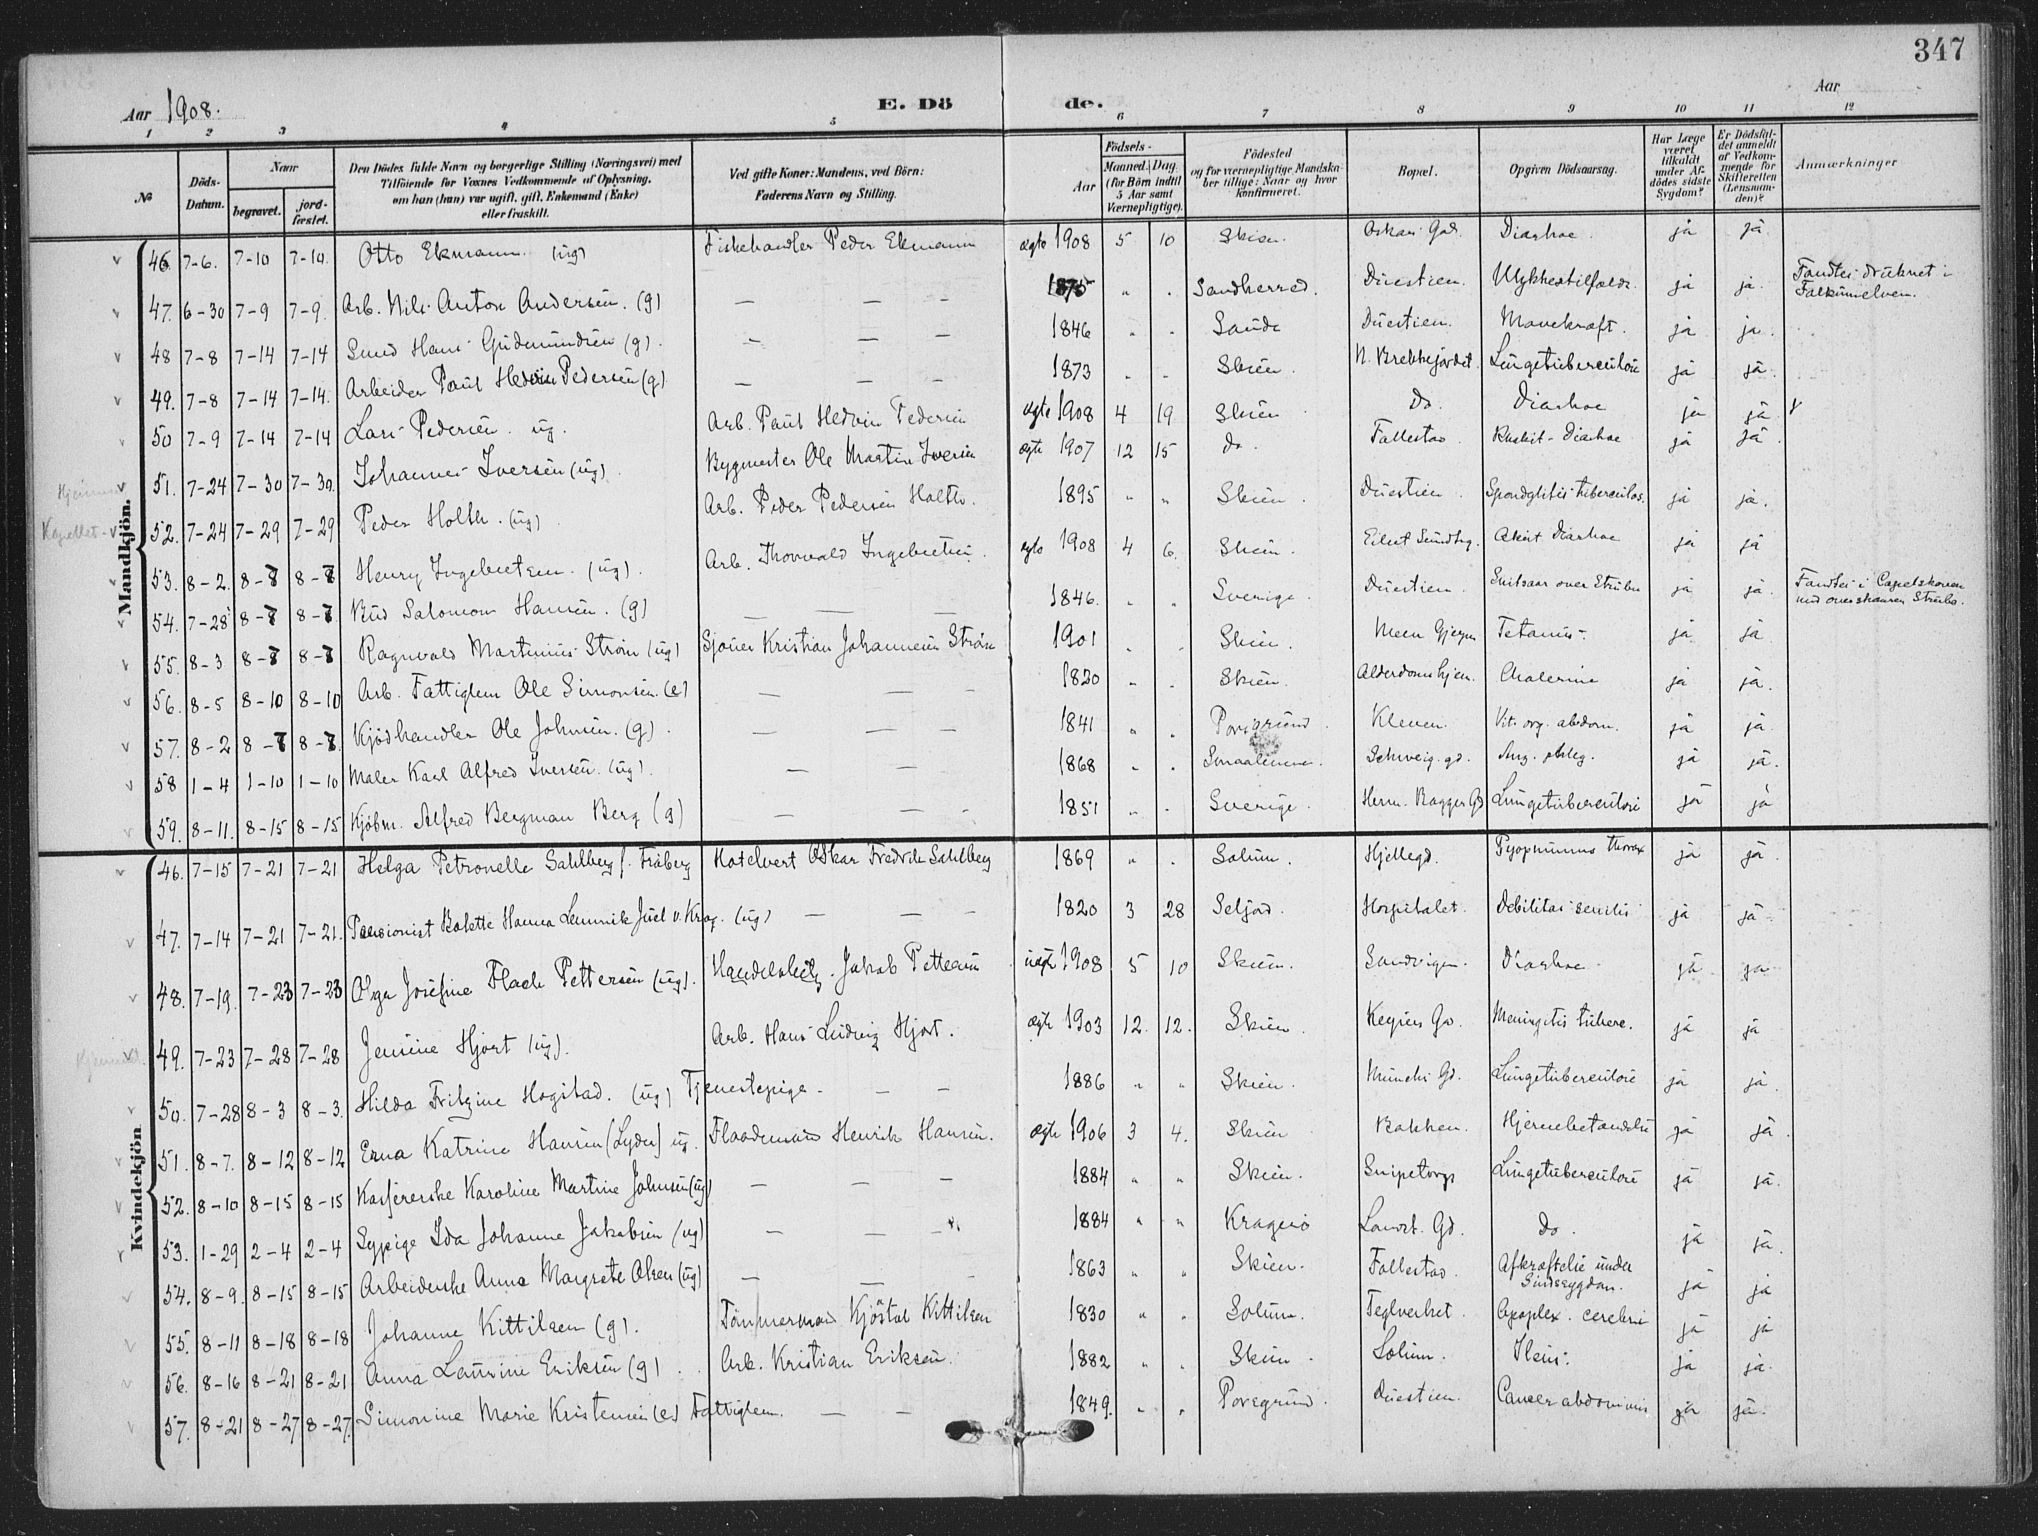 347
Aar 1908. E. Dö de. Aar
1 2 3 4 5 6 7 8 9 10 11 12
№ Döds-Datum. Naar begravet. jordfæstet. Den Dödes fulde Navn og borgerlige Stilling (Næringsvei) med Tilföiende for Voxnes Vedkommende af Oplysning, om han (hun) var ugift, gift, Enkemand (Enke) eller fraskilt. Ved gifte Koner: Mandens, ved Börn: Faderens Navn og Stilling. Födsels- Aar Maaned. Dag. (for Börn indtil 5 Aar samt Værnepligtige). Födested og for værnepligtige Mandskaber tillige: Naar og hvor konfirmeret. Bopæl. Opgiven Dödsaarsag. Har Læge været tilkaldt under Afdödes sidste Sygdom? Er Dödsfaldet anmeldt af Vedkommende for Skifteretten (Lensmanden)? Anmærkninger
Mandkjön.
46. 7-6. 7-10 7-10. Otto Ekmann. (ug) Fiskehandler Peder Ekmann ægte 1908 5 10 Skien Oskars Gd. Diarhoe. ja ja
47. 6-30 7-9 7-9. Arb. Nils Anton Andersen. (g) — — — 1875 " " Sandherred. Duestien. Ulykkestilfælde. ja ja. Fandtes druknet i Falkumelven.
48 7-8 7-14 7-14 Smed Hans Gudmundsen (g). — — — 1846 " " Saude Duestien. Mavekræft. ja ja.
49. 7-8 7-14 7-14. Arbeider Paul Hedvin Pedersen (g) — — — 1873 " " Skien. N. Brekkejordet. Lungetuberculose ja ja.
50 7-9 7-14 7-14 Lars Pedersen. ug. Arb. Paul Hedvin Pedersen ægte 1908 4 19 Skien Do. Diarhoe ja ja
51. 7-24 7-30 7-30. Johannes Iversen (ug) Bygmester Ole Martin Iversen ægte 1907 12 15 do Falkestad. Rachit-Diarhoe ja ja.
Kapellet
52. 7-24 7-29 7-29 Peder Holth. (ug) Arb. Peder Pedersen Holth. 1895 " " Skien. Duestien. Spondylitis tuberculos. ja ja.
53. 8-2. 8-8 8-8 Henry Ingebretsen. (ug). Arb. Thorvald Ingebretsen. ægte 1908 4 6. Skien. Eilert Sundtsg. Akut Diarhoe ja ja
54. 7-28 8-8 8-8 Bud Salomon Hansen. (g) — — 1846. " " Sverige. Duestien. Snitsaar over Struben ja ja. Fandtes i Capelskoven med overskaaren Strube.
55. 8-3 8-8 8-8 Ragnvald Martinius Strøm (ug) Sjøuer Kristian Johannesen Strøm 1901 " " Skien. Meen Gjerpen Tetanus. ja ja
56. 8-5 8-10 8-10 Arb. Fattiglem Ole Simonsen. (e) — — — 1820 " " Skien. Alderdomshjem. Cholerine ja ja.
57. 8-2 8-8 8-8. Kjødhandler Ole Johnsen. (g). — — — 1841 " " Porsgrund. Kleven. Vit. org. abdom. ja ja.
58 1-4 1-10 1-10 Maler Karl Alfred Iversen. (ug). — — 1868 " " Smaalenene Schweig. gd. Ang. phleg. ja ja.
59. 8-11. 8-15 8-15 Kjøbm. Alfred Bergman Berg (g) — — — 1851 " " Sverige. Herm. Bagges Gd Lungetuberculose ja ja
Kvindekjön
46. 7-15 7-21 7-21 Helga Petronelle Sahlberg f. Fraberg Hotelvert Oskar Fredrik Sahlberg 1869 " " Solum. Hjellegd. Pyopneumo thorax ja ja.
47. 7-14 7-21 7-21. Pensionist Bolette Hanna Lemmik Juel v. Krog. (ug) — — — 1820 3 28 Seljord. Hospitalet. Debilitas senilis ja ja.
48. 7-19. 7-23 7-23 Olga Josefine Flack Pettersen (ug). Jakob Pettersen uægte 1908 5 10 Skien. Sandvigen. Diarhoe. ja ja
49. 7-23 7-28 7-28 Jensine Hjort (ug). Arb. Hans Ludvig Hjort. ægte 1903 12. 12. Skien. Keysers Gd. Meningitis tuberc. ja ja
50. 7-28 8-3 8-3. Hilda Fritzine Hogstad. (ug) Tjenestepige — — 1886 " " Skien. Munchs Gd. Lungetuberculose ja ja.
51. 8-7. 8-12 8-12 Erna Katrine Hansen (Lyder) ug. Flaademand Henrik Hansen. ægte 1906 3 4. Skien Bakken. Hjernebetændelse ja ja.
52. 8-10 8-15 8-15 Kassererske Karoline Martine Johnsen (ug) — — — 1884 " " Skien. Snipetorp Lungetuberculose ja ja.
53. 1-29 2-4 2-4 Sypige Ida Johanne Jakobsen (ug) — — — 1884 " " Kragerø Landst. Gd. do. ja ja.
54. 8-9. 8-15 8-15 Arbeiderske Anna Margrete Olsen (ug) — — — 1863 " " Skien. Falkestad. Afkræftelse under Sindssygdom. ja ja
55. 8-11 8-18 8-18 Johanne Kittilsen (g). Tømmermand Kjøstol Kittilsen 1830 " " Solum. Teglverket. Apoplex. cerebri ja ja
56. 8-16 8-21 8-21 Anna Laurine Eriksen (g). Arb. Kristian Eriksen. 1882 " " Skien. Solum. Ileus. ja ja.
57. 8-21 8-27 8-27. Simonine Marie Kristensen (e) Fattiglem. — — 1849. " " Porsgrund. Duestien. Cancer abdominis ja ja.